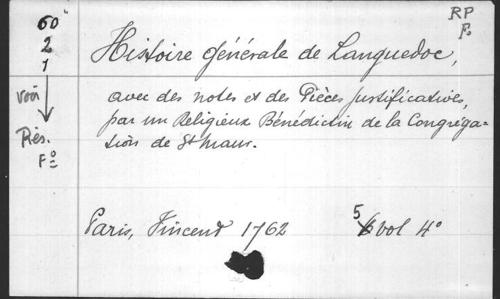 60
2
1
voir
Rés.
F°
RP
F.
Histoire Générale de Languedoc,
avec des notes et des Pièces justificatives,
par un Religieux Bénédictin de la Congréga-
tion de St Maur.
Paris, Vincent 1762
5 vol 4°